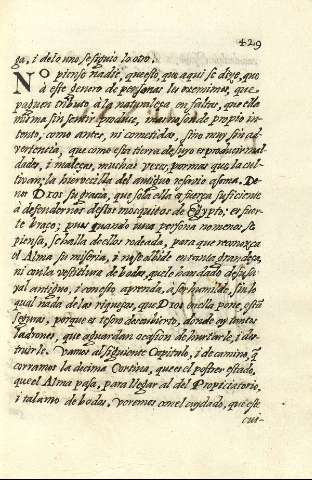 429
ga, i delo uno se siguio lo otro.
No piense nadie, questo, que aqui se dize, que
à este genero de personas lu eximimos, que
paguen tributo à la naturaleça, en faltas, que ella
misma sin sentir produze, mas no, son de proprio in-
tento, como antes, ni cometidas, sino muy sin ad-
vertencia, que como esta tierra de suyo es produzir mal-
dades, i malezas, muchas vezes, por mas que la cul-
tivan, la hierbezilla del antiguo resavio asoma. De-
nos Dios su gracia, que sola ella es fuerça suficiente
a defendernos destos mosquitos de Egypto; es fuer-
te braço; pues quando una persona menos se
piensa, se halla dellos rodeada, para que reconozca
el Alma su miseria, i no se olvide en tanta grandeza,
ni con la vestitura de bodas, quele han dado de su sa-
yal antiguo, i con esto aprenda, a ser humilde, sin lo
qual nada de las riquezas, que Dios en ella pone, està
seguras, porque es tesoro descubierto, donde ay tantos
ladrones, que aguardan ocasion de hurtarle, i des-
truirle. Vamos al siguiente Capitulo, i de camino, q̃
corramos la decima Cortina, que es el postrer estado,
que el Alma pasa, para llegar al del Propiciatorio,
i talamo de bodas, veremos con el cuidado, que este
cui-